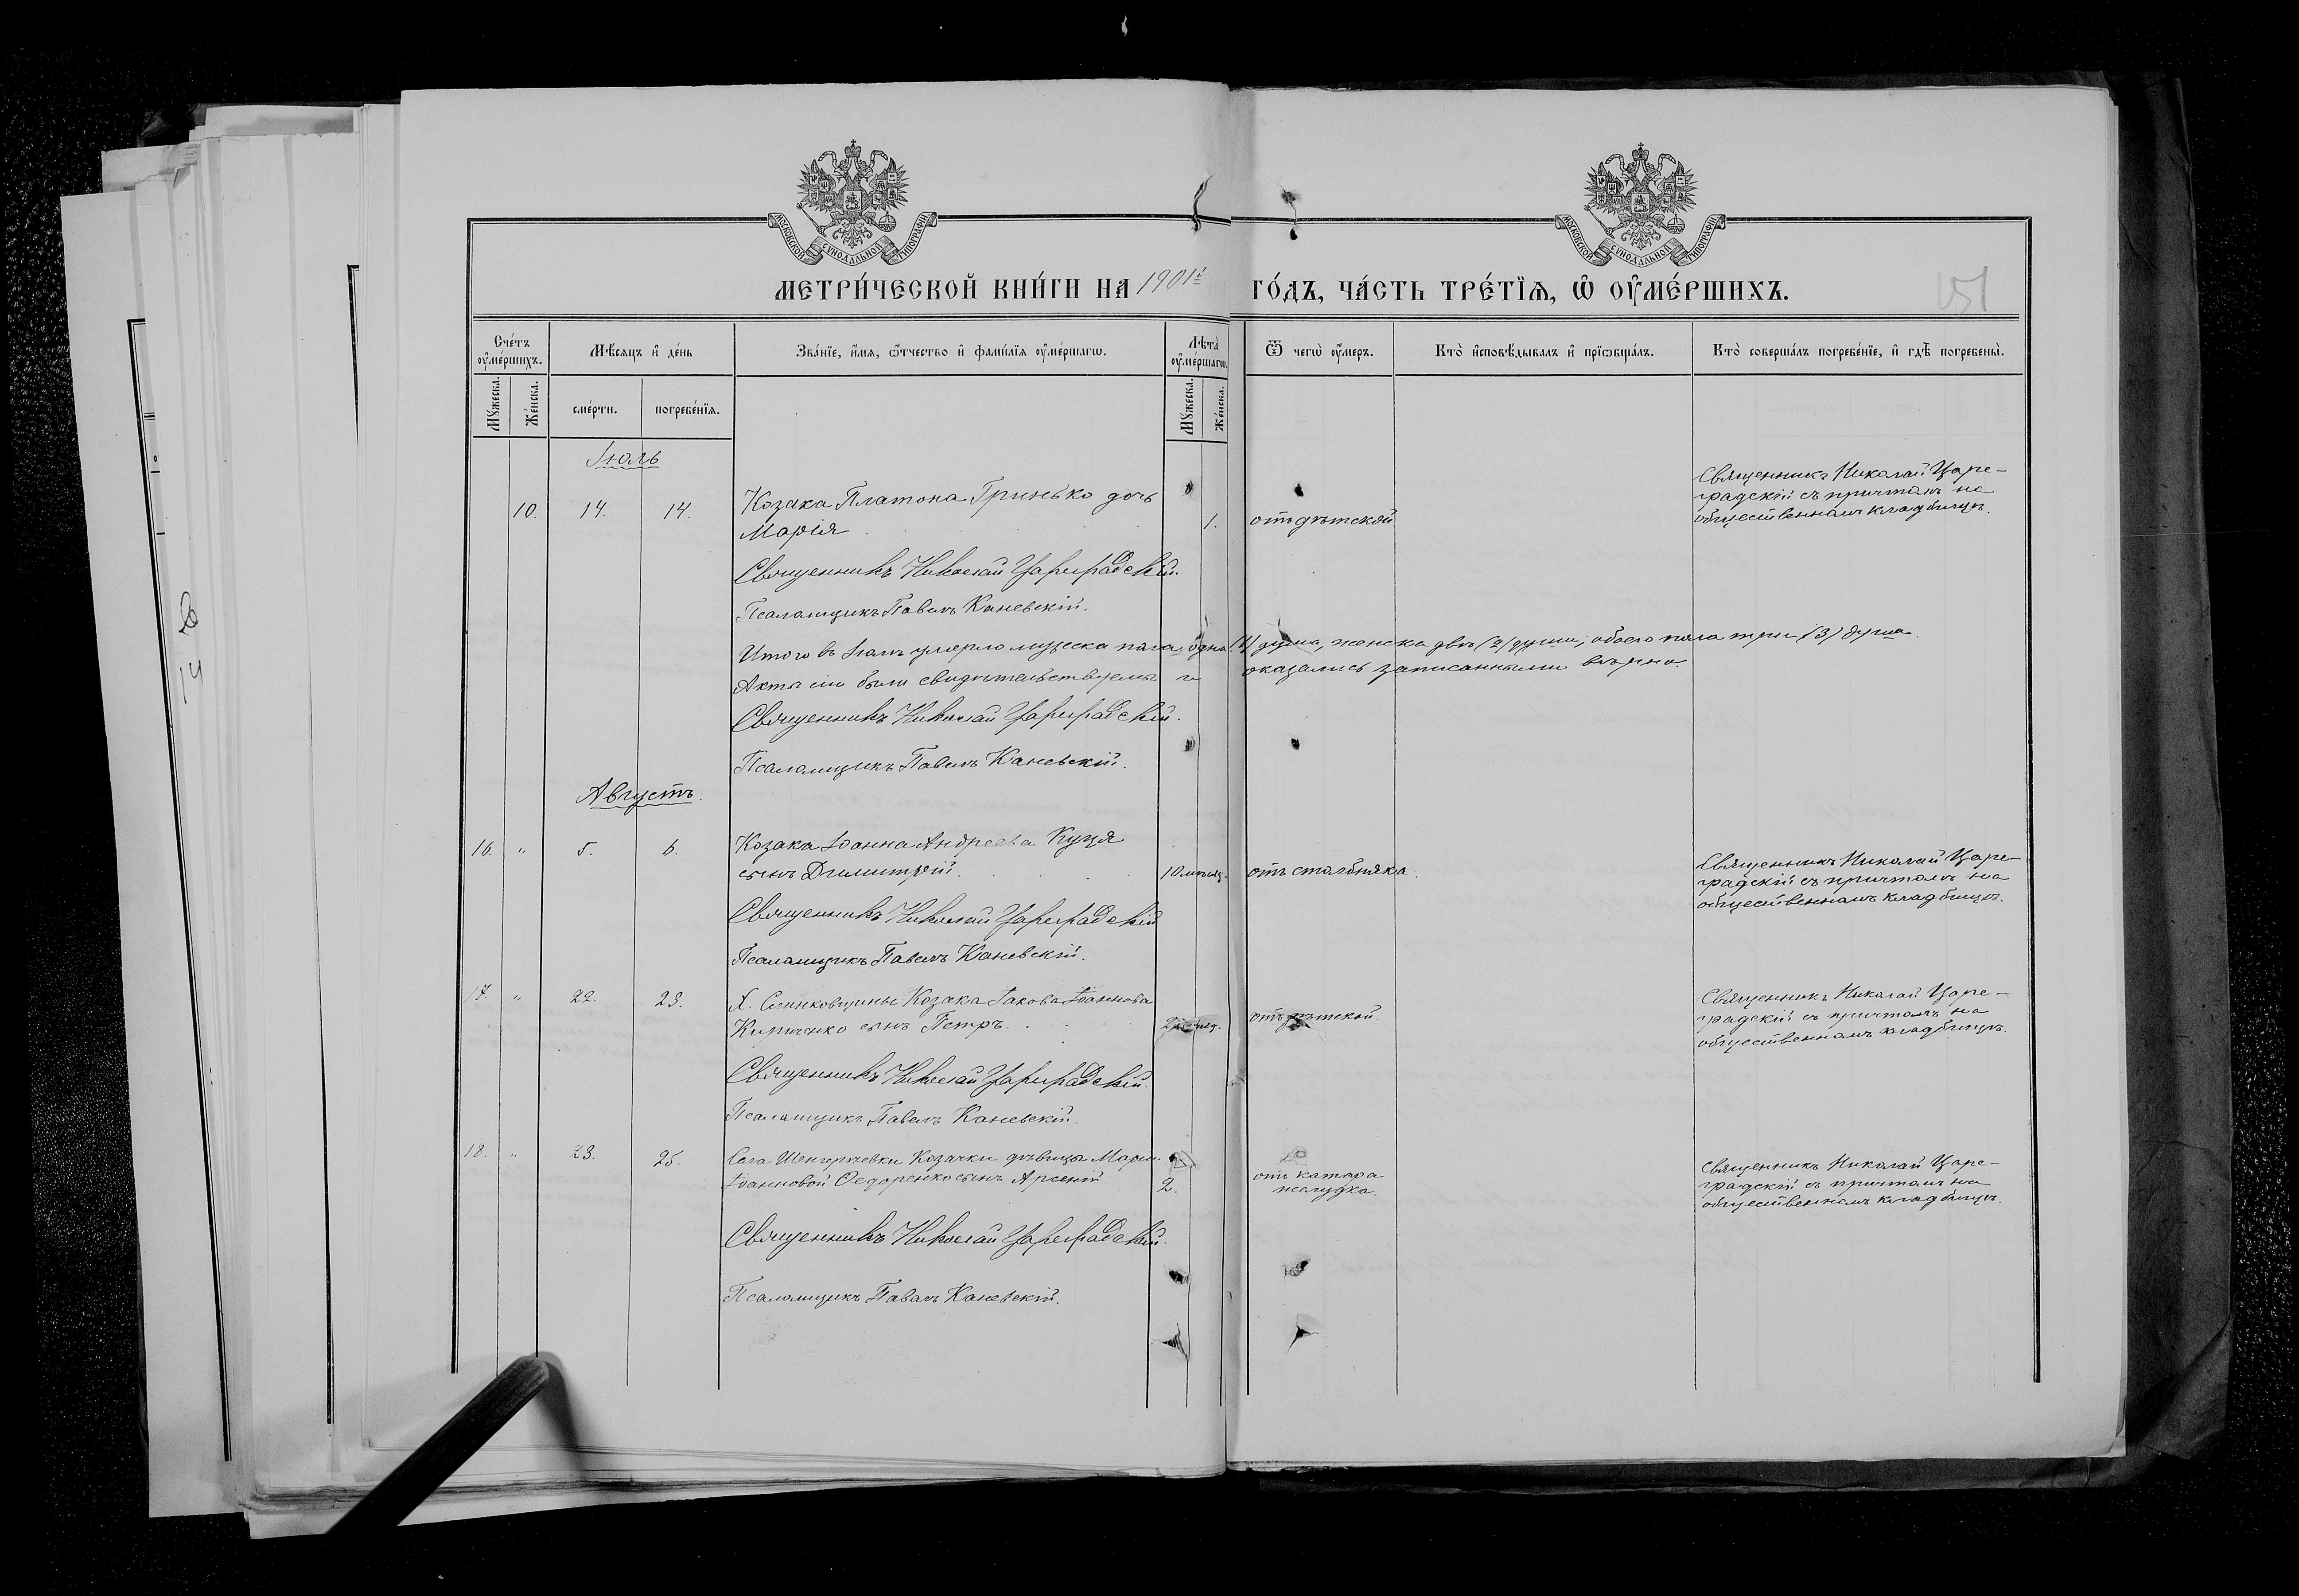 МОСКОВСКОЙ СѴНОДАЛЬНОЙ ТИПОГРАФІИ
МОСКОВСКОЙ СѴНОДАЛЬНОЙ ТИПОГРАФІИ
МЕТРИ́ЧЕСКОЙ КНИ́ГИ НА 1901й ГО́ДЪ, ЧА́СТЬ ТРЕ́ТІѦ, Ѡ ОУ҆МЕ́РШИХЪ.
151
Сче́тъ оу҆ме́ршихъ.
Мѣ́сяцъ и҆ де́нь
Зва́нїе, и҆́мѧ, ѻ҆́тчество и҆ фамилїѧ оу҆ме́ршагѡ.
Лѣта̀ оу҆ме́ршагѡ.
Ѿ чегѡ̀ оу҆́меръ.
Кто̀ и҆сповѣ́дывалъ и҆ прїѡбща́лъ.
Кто̀ соверша́лъ погребе́нїе, и҆ гдѣ̀ погребены̀.
Мꙋ́жеска.
Же́нска.
сме́рти.
погребе́нїѧ.
Мꙋ́жеска.
Же́нска.
Іюль
10. 14. 14. Козака Платона Гринько дочь
Марія 1. отъ дѣтской
Священникъ Николай Царе-
градскій съ причтомъ на
общественномъ кладбищѣ.
Священникъ Николай Цареградскій.
Псаломщикъ Павелъ Каневскій.
Итого въ Іюлѣ умерло мужеска пола одна (1) душа, женска двѣ (2) души, обоего пола три (3) душа.
Акты сіи были свидѣтельствуемы и оказались записанными вѣрно
Священникъ Николай Цареградскій.
Псаломщикъ Павелъ Каневскій.
Августъ.
16. " 5. 6. Козака Іоанна Андреева Куця
сынъ Димитрій. 10 мѣсяц. отъ столбняка.
Священникъ Николай Царе-
градскій съ причтомъ на
общественномъ кладбищѣ.
Священникъ Николай Цареградскій
Псаломщикъ Павелъ Каневскій.
17. " 22. 23. Х. Сенковщины Козака Іакова Іоаннова
Кириченко сынъ Петръ. отъ дѣтской.
Священникъ Николай Царе-
градскій съ причтомъ на
общественномъ кладбищѣ.
Священникъ Николай Цареградскій.
Псаломщикъ Павелъ Каневскій.
18. " 23. 25. Села Козачки дѣвицы Маріи
Іоанновой Ѳедоренко сынъ Арсеній 2. отъ катара
желудка.
Священникъ Николай Царе-
градскій съ причтомъ на
общественномъ кладбищѣ.
Священникъ Николай Цареградскій.
Псаломщикъ Павелъ Каневскій.